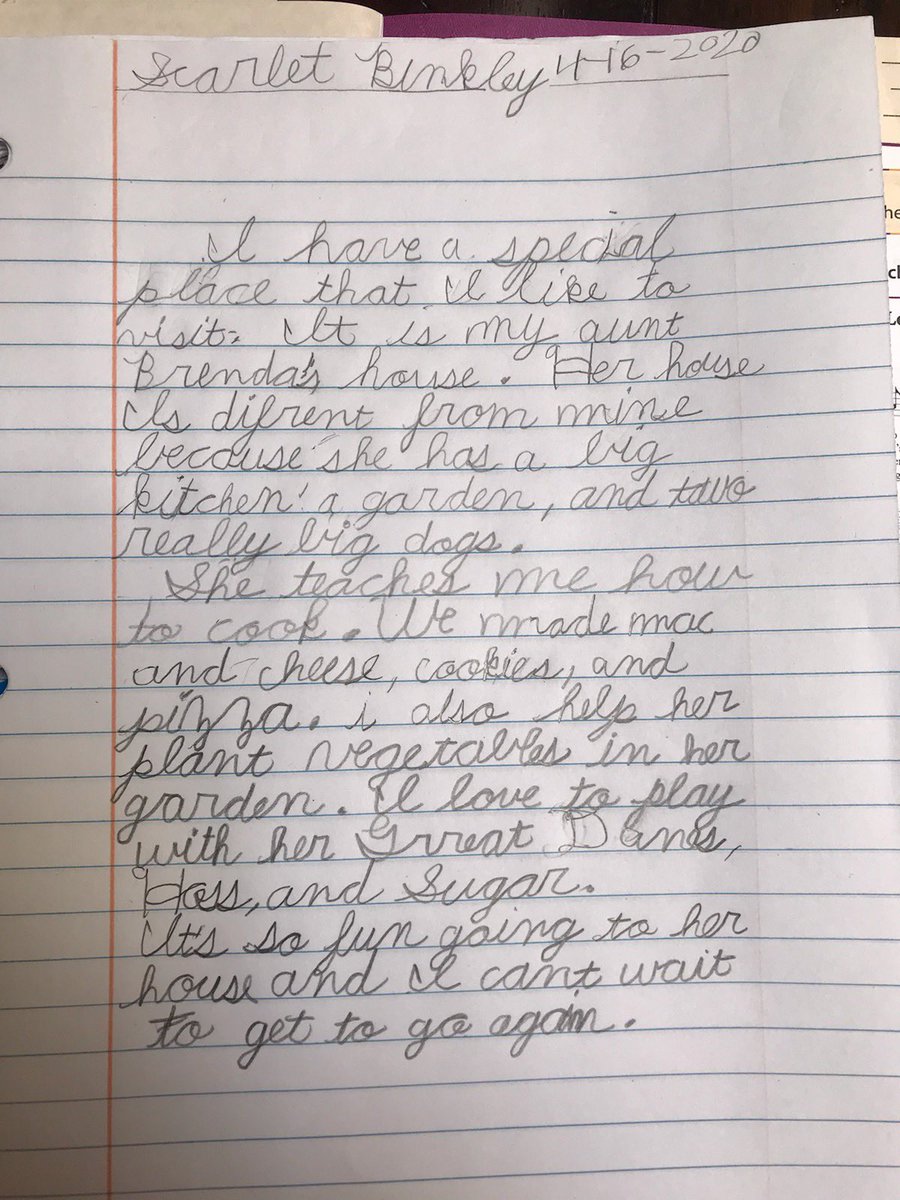 Scarlet Binkley 4-16-2020
I have a special
place that I like to
visit. It is my aunt
Brenda's house. Her house
Is difrent from mine
because she has a big
kitchen, a garden, and two
really big dogs.
She teaches me how
to cook. We made mac
and cheese, cookies, and
pizza. i also help her
plant vegetables in her
garden. I love to play
with her Great Danes,
Hoss, and Sugar.
It's so fun going to her
house and I cant wait
to get to go again.